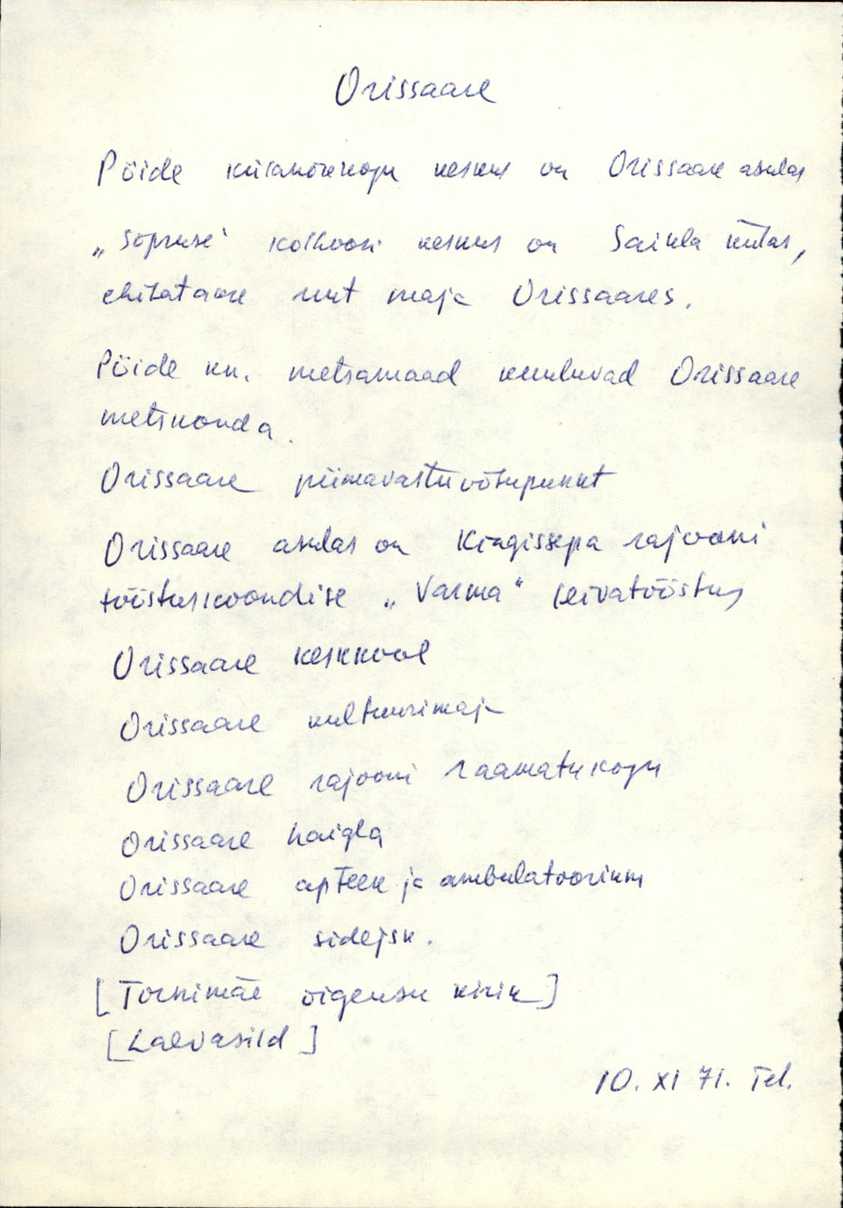 Orissaare
Pöide külanõukogu keskus on Orissaare asulas
„Sõpruse" kolhoosi keskus on Saikla külas,
ehitatakse uut maja Orissaares.
Pöide kn. metsamaad kuuluvad Orissaare
metskonda.
Orissaare piimavastuvõtupunkt
Orissaare asulas on Kingissepa rajooni
tööstuskoondise „Varma" leivatööstus
Orissaare keskkool
Orissaare kultuurimaja
Orissaare rajooni raamatukogu
Orissaare haigla
Orissaare apteek ja ambulatoorium
Orissaare sidejsk.
[Tornimäe õigeusu kirik]
[Laevasild]
10. XI 71. Tel.